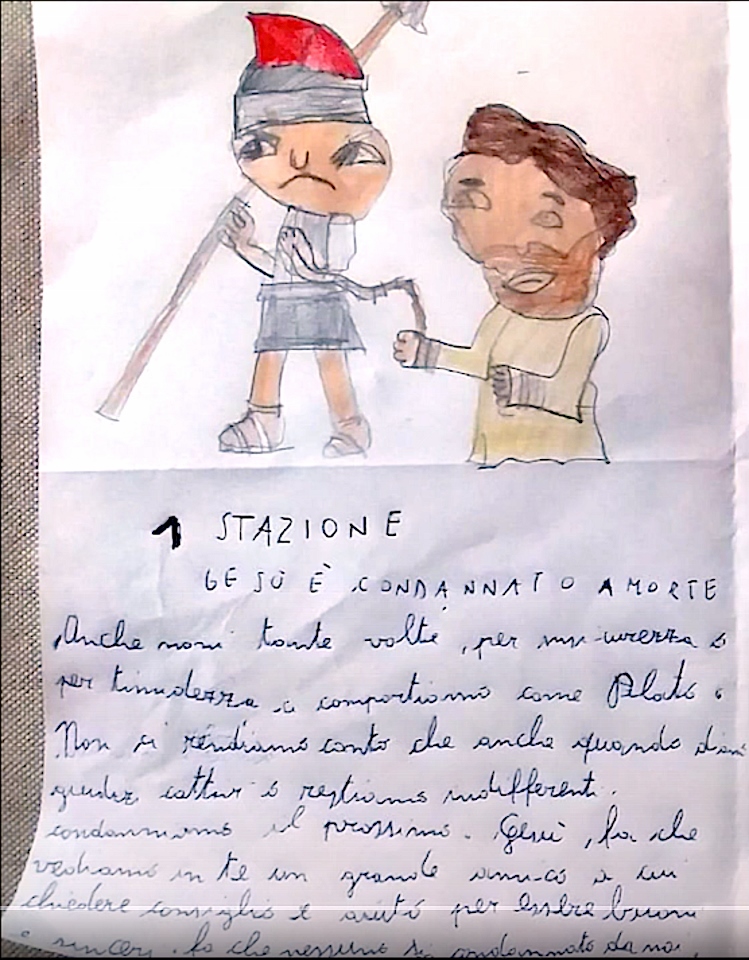 1 STAZIONE
GESÙ È CONDANNATO A MORTE
Anche noi tante volte, per insicurezza o
per timidezza ci comportiamo come Pilato.
Non ci rendiamo conto che anche quando diamo
giudizi cattivi o restiamo indifferenti.
condanniamo il prossimo. Gesù, fa che
vediamo in te un grande amico a cui
chiedere consiglio e aiuto per essere buoni
e sinceri. fa che nessuno sia condannato da noi,